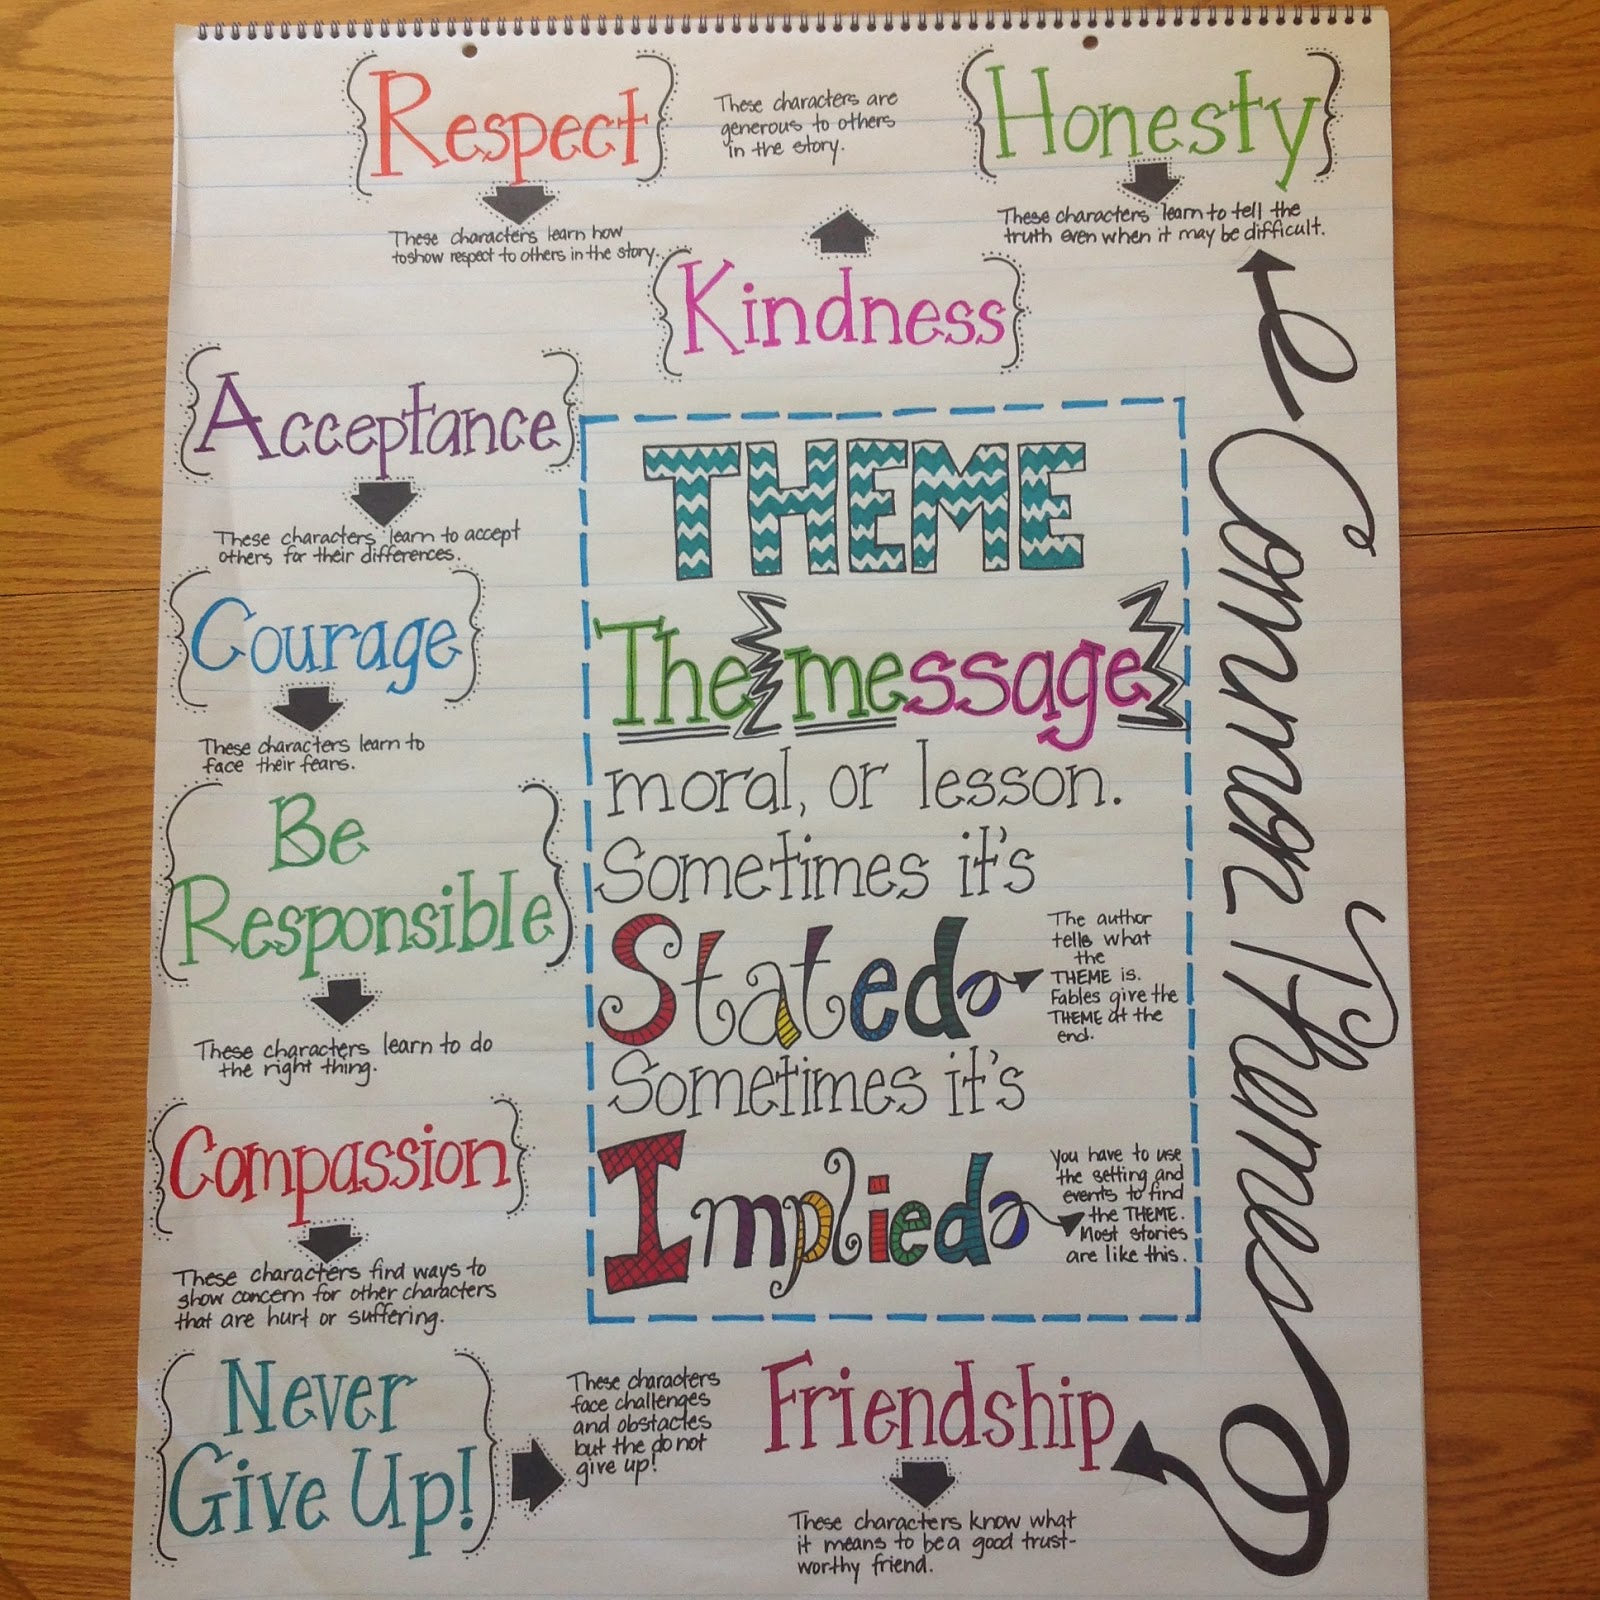 Respect
These characters learn how
to show respect to others in the story.
These characters are
generous to others
in the story.
Kindness
Honesty
These characters learn to tell the
truth even when it may be difficult.
Acceptance
These characters learn to accept
others for their differences.
Courage
These characters learn to
face their fears.
Be
Responsible
These characters learn to do
the right thing.
Compassion
These characters find ways to
show concern for other characters
that are hurt or suffering.
Never
Give Up!
These characters
face challenges
and obstacles
but the do not
give up!
Friendship
These characters know what
it means to be a good trust-
worthy friend.
THEME
The message
moral, or lesson.
Sometimes it's
Stated
The author
tells what
the
THEME is.
Fables give the
THEME at the
end.
Sometimes it's
Implied
You have to use
the setting and
events to find
the THEME.
Most stories
are like this.
Common Themes